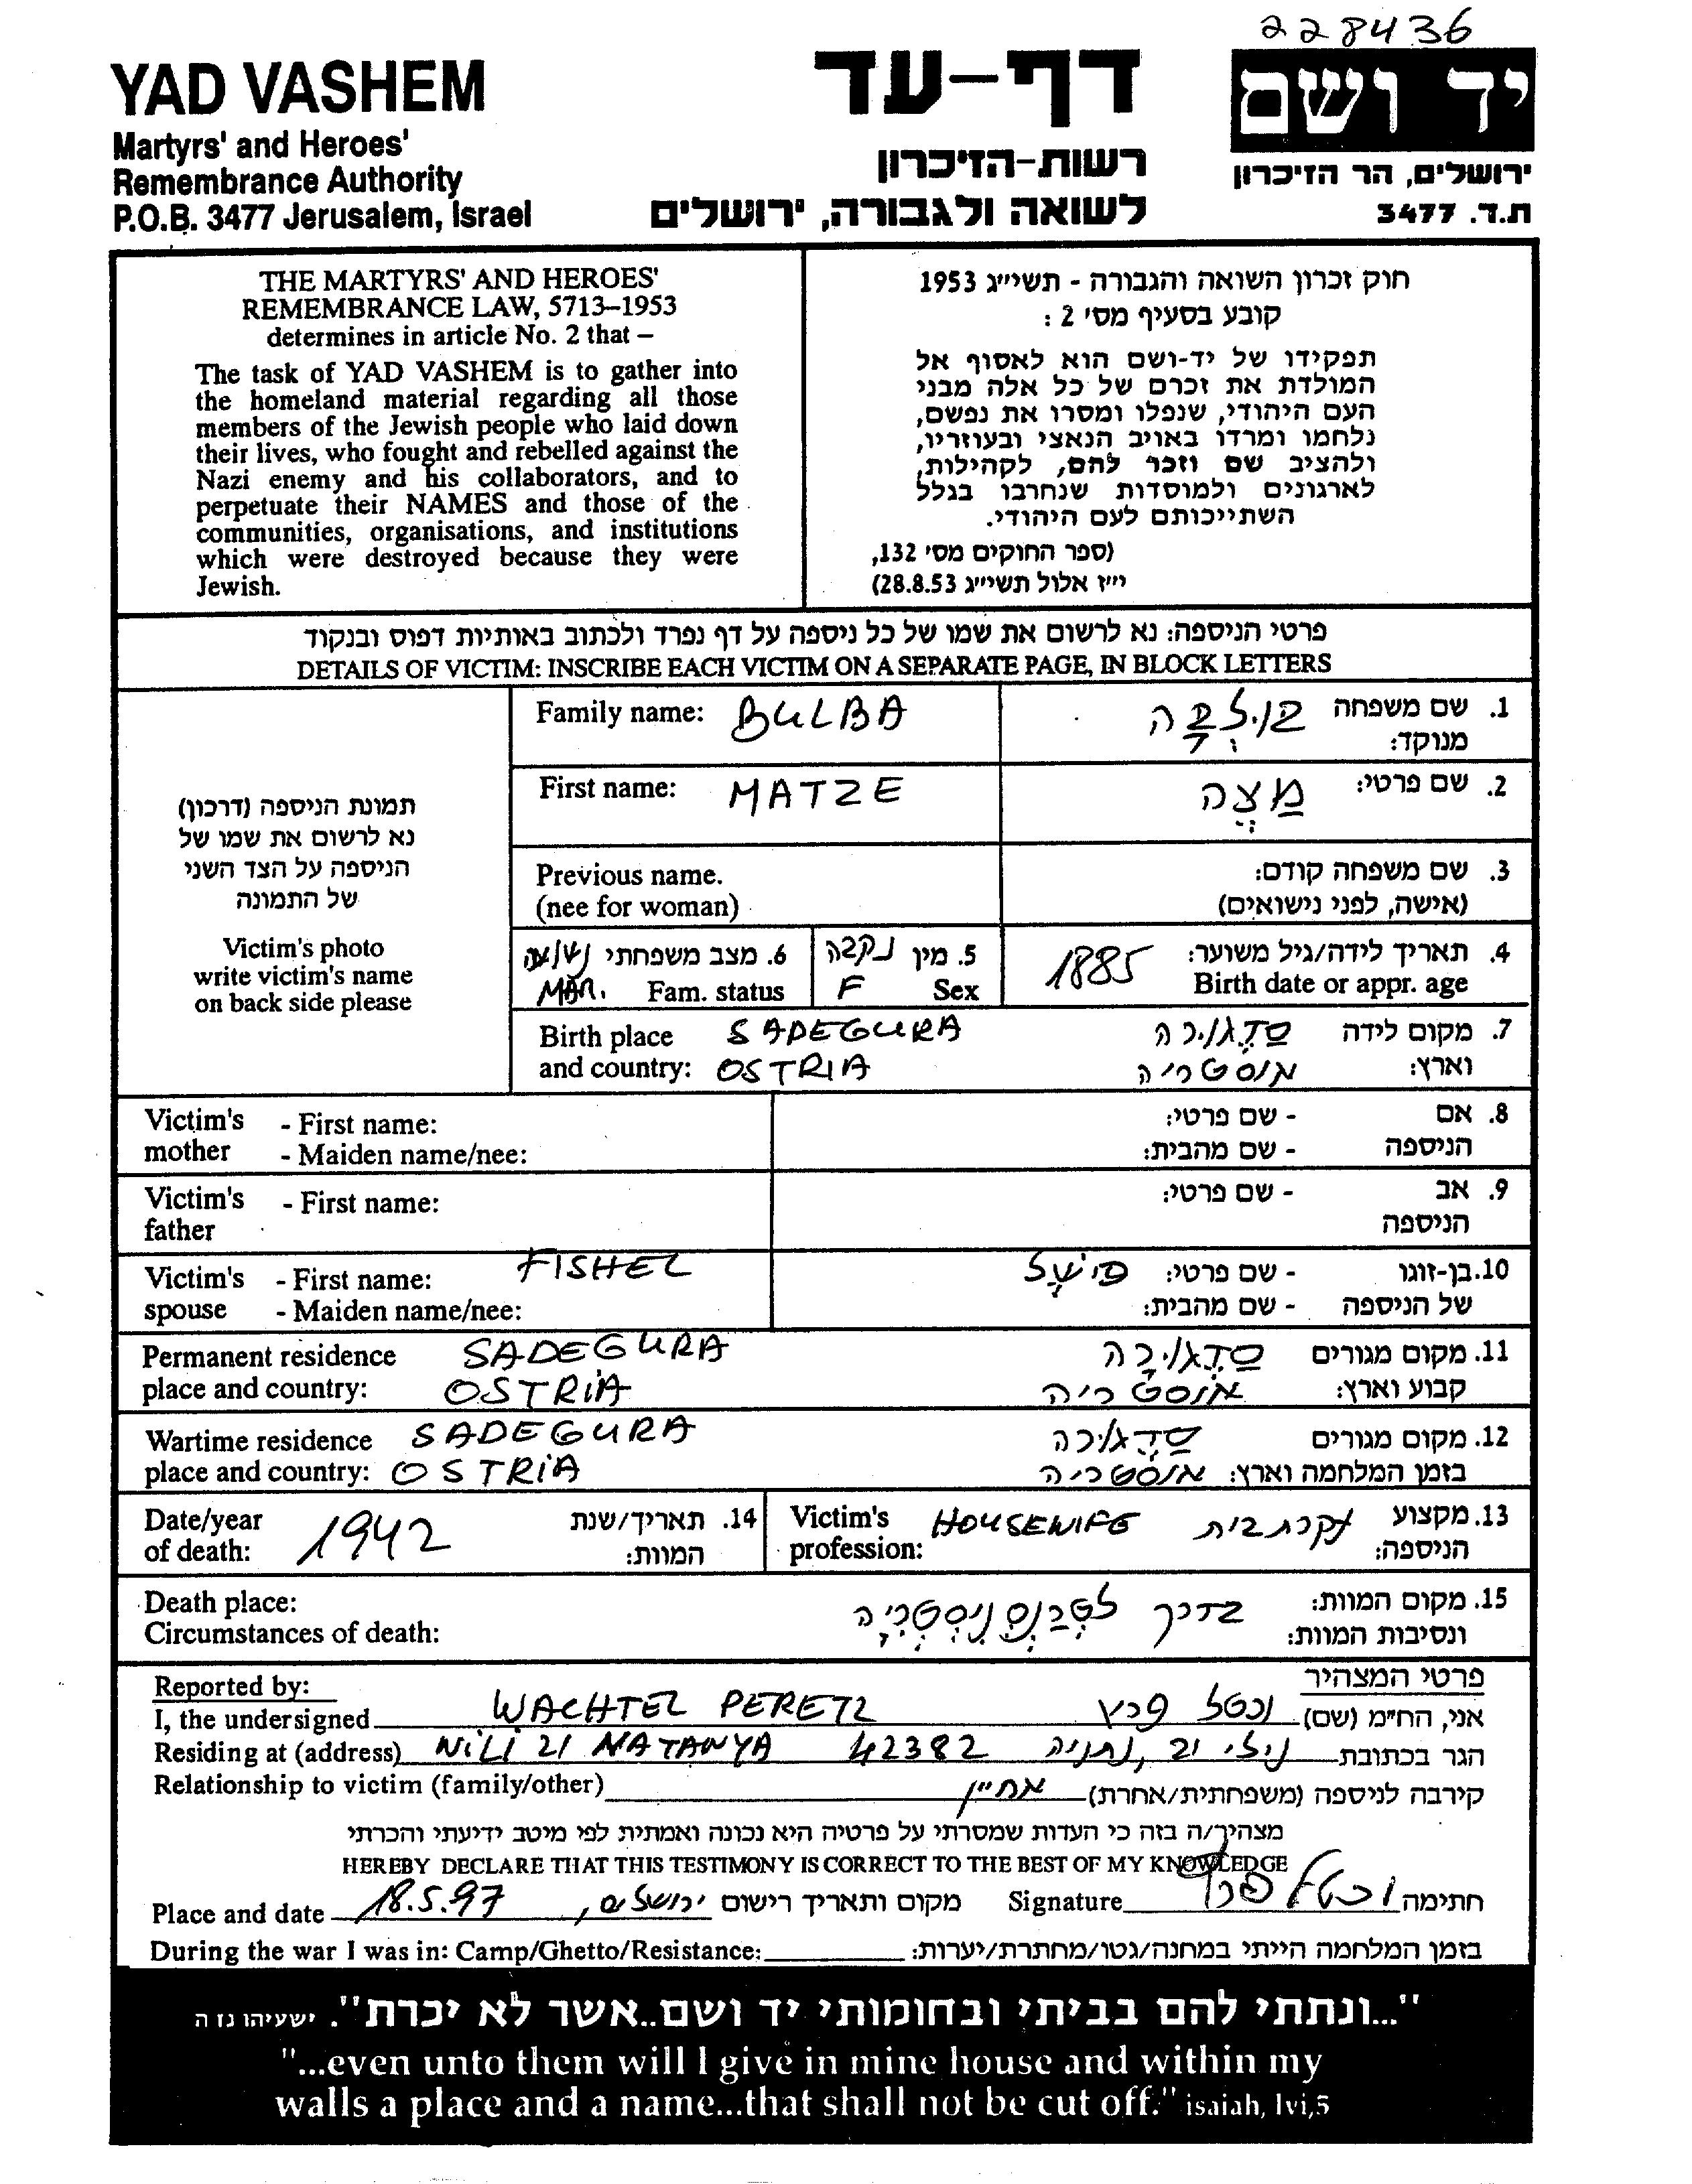 228436
YAD VASHEM
Martyrs' and Heroes'
Remembrance Authority
P.O.B. 3477 Jerusalem, Israel
דף-עד
רשות-הזיכרון
לשואה ולגבורה, ירושלים
יד ושם
ירושלים, הר הזיכרון
ת.ד. 3477
THE MARTYRS' AND HEROES'
REMEMBRANCE LAW, 5713–1953
determines in article No. 2 that –
The task of YAD VASHEM is to gather into
the homeland material regarding all those
members of the Jewish people who laid down
their lives, who fought and rebelled against the
Nazi enemy and his collaborators, and to
perpetuate their NAMES and those of the
communities, organisations, and institutions
which were destroyed because they were
Jewish.
חוק זכרון השואה והגבורה - תשי״ג 1953
קובע בסעיף מס' 2 :
תפקידו של יד-ושם הוא לאסוף אל
המולדת את זכרם של כל אלה מבני
העם היהודי, שנפלו ומסרו את נפשם,
נלחמו ומרדו באויב הנאצי ובעוזריו,
ולהציב שם וזכר להם, לקהילות,
לארגונים ולמוסדות שנחרבו בגלל
השתייכותם לעם היהודי.
(ספר החוקים מס' 132,
י״ז אלול תשי״ג 28.8.53)
פרטי הניספה: נא לרשום את שמו של כל ניספה על דף נפרד ולכתוב באותיות דפוס ובנקוד
DETAILS OF VICTIM: INSCRIBE EACH VICTIM ON A SEPARATE PAGE, IN BLOCK LETTERS
תמונת הניספה (דרכון)
נא לרשום את שמו של
הניספה על הצד השני
של התמונה
Victim's photo
write victim's name
on back side please
Family name: BULBA
1. שם משפחה בולבה
מנוקד:
First name: MATZE
2. שם פרטי: מצה
Previous name.
(nee for woman)
3. שם משפחה קודם:
(אישה, לפני נישואים)
6. מצב משפחתי נשואה
MAR. Fam. status
5. מין נקבה
F Sex
4. תאריך לידה/גיל משוער: 1885
Birth date or appr. age
Birth place SADEGURA
and country: OSTRIA
7. מקום לידה סדגורה
וארץ: אוסטריה
Victim's - First name:
mother - Maiden name/nee:
8. אם - שם פרטי:
הניספה - שם מהבית:
Victim's - First name:
father
9. אב - שם פרטי:
הניספה
Victim's - First name: FISHEL
spouse - Maiden name/nee:
10. בן-זוגו - שם פרטי: פישל
של הניספה - שם מהבית:
Permanent residence SADEGURA
place and country: OSTRIA
11. מקום מגורים סדגורה
קבוע וארץ: אוסטריה
Wartime residence SADEGURA
place and country: OSTRIA
12. מקום מגורים סדגורה
בזמן המלחמה וארץ: אוסטריה
Date/year 1942
of death:
14. תאריך/שנת
המוות:
Victim's HOUSEWIFE
profession:
13. מקצוע עקרת בית
הניספה:
Death place:
Circumstances of death:
15. מקום המוות: בדרך לטרנסניסטריה
ונסיבות המוות:
Reported by:
פרטי המצהיר
I, the undersigned WACHTEL PERETZ
אני, החי״מ (שם) וכטל פרץ
Residing at (address) NILI 21 NATANYA 42382
הגר בכתובת נילי 21, נתניה
Relationship to victim (family/other)
קירבה לניספה (משפחתית/אחרת) אחיין
מצהיר/ה בזה כי העדות שמסרתי על פרטיה היא נכונה ואמתית לפי מיטב ידיעתי והכרתי
HEREBY DECLARE THAT THIS TESTIMONY IS CORRECT TO THE BEST OF MY KNOWLEDGE
Place and date 18.5.97
מקום ותאריך רישום ירושלים,
Signature
חתימה וכטל פרץ
During the war I was in: Camp/Ghetto/Resistance:
בזמן המלחמה הייתי במחנה/גטו/מחתרת/יערות:
"...ונתתי להם בביתי ובחומותי יד ושם..אשר לא יכרת". ישעיהו נו ה
"...even unto them will I give in mine house and within my
walls a place and a name...that shall not be cut off." isaiah, lvi,5